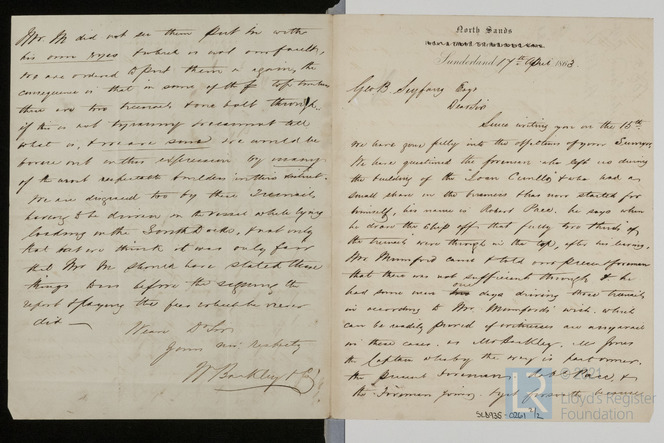 Mr. M did not see them put in with
his own eyes & which is not our fault,
we are ordered to put them in again, the
consequence is that in some of the top timbers
there are two treenails & one bolt through.
if this is not tyranny we cannot tell
what is, & we are sure we would be
borne out in this expression by many
of the most respectable builders in this district.
We are disgraced too by these Treenails
having to be driven in the vessel while lying
loading in the South Dock, & not only
that but we think it was only fair
that Mr. M should have stated these
things before the signing the
report & paying the fee which he never
did —
We are Dr Sir
Yours respectly
W Barkley & Co
North Sands
Sunderland 17th April 1863.
Geo B. Seyfang Esqr
Dear Sir
Since writing you on the 15th
We have gone fully into the affections of your Surveyor
We have questioned the foreman who left us during
the building of the " & who had a
small share in the business & has now started for
himself, his name is Robert he says when
he drew the that fully two thirds of
the treenails were through in the top, after his leaving,
Mr Mumford came & told our present foreman
that there was not sufficient through & he
had some men one days driving three treenails
in according to Mr. Mumfords wish. which
can be readily proved if witnesses are any avail
in these cases. as Mr Barkley. Mr Jones
the Captain who by the way is part owner.
the present Foreman, & &
the Foreman
© 2021
Lloyd's Register
Foundation
SLD935-0261 1/2